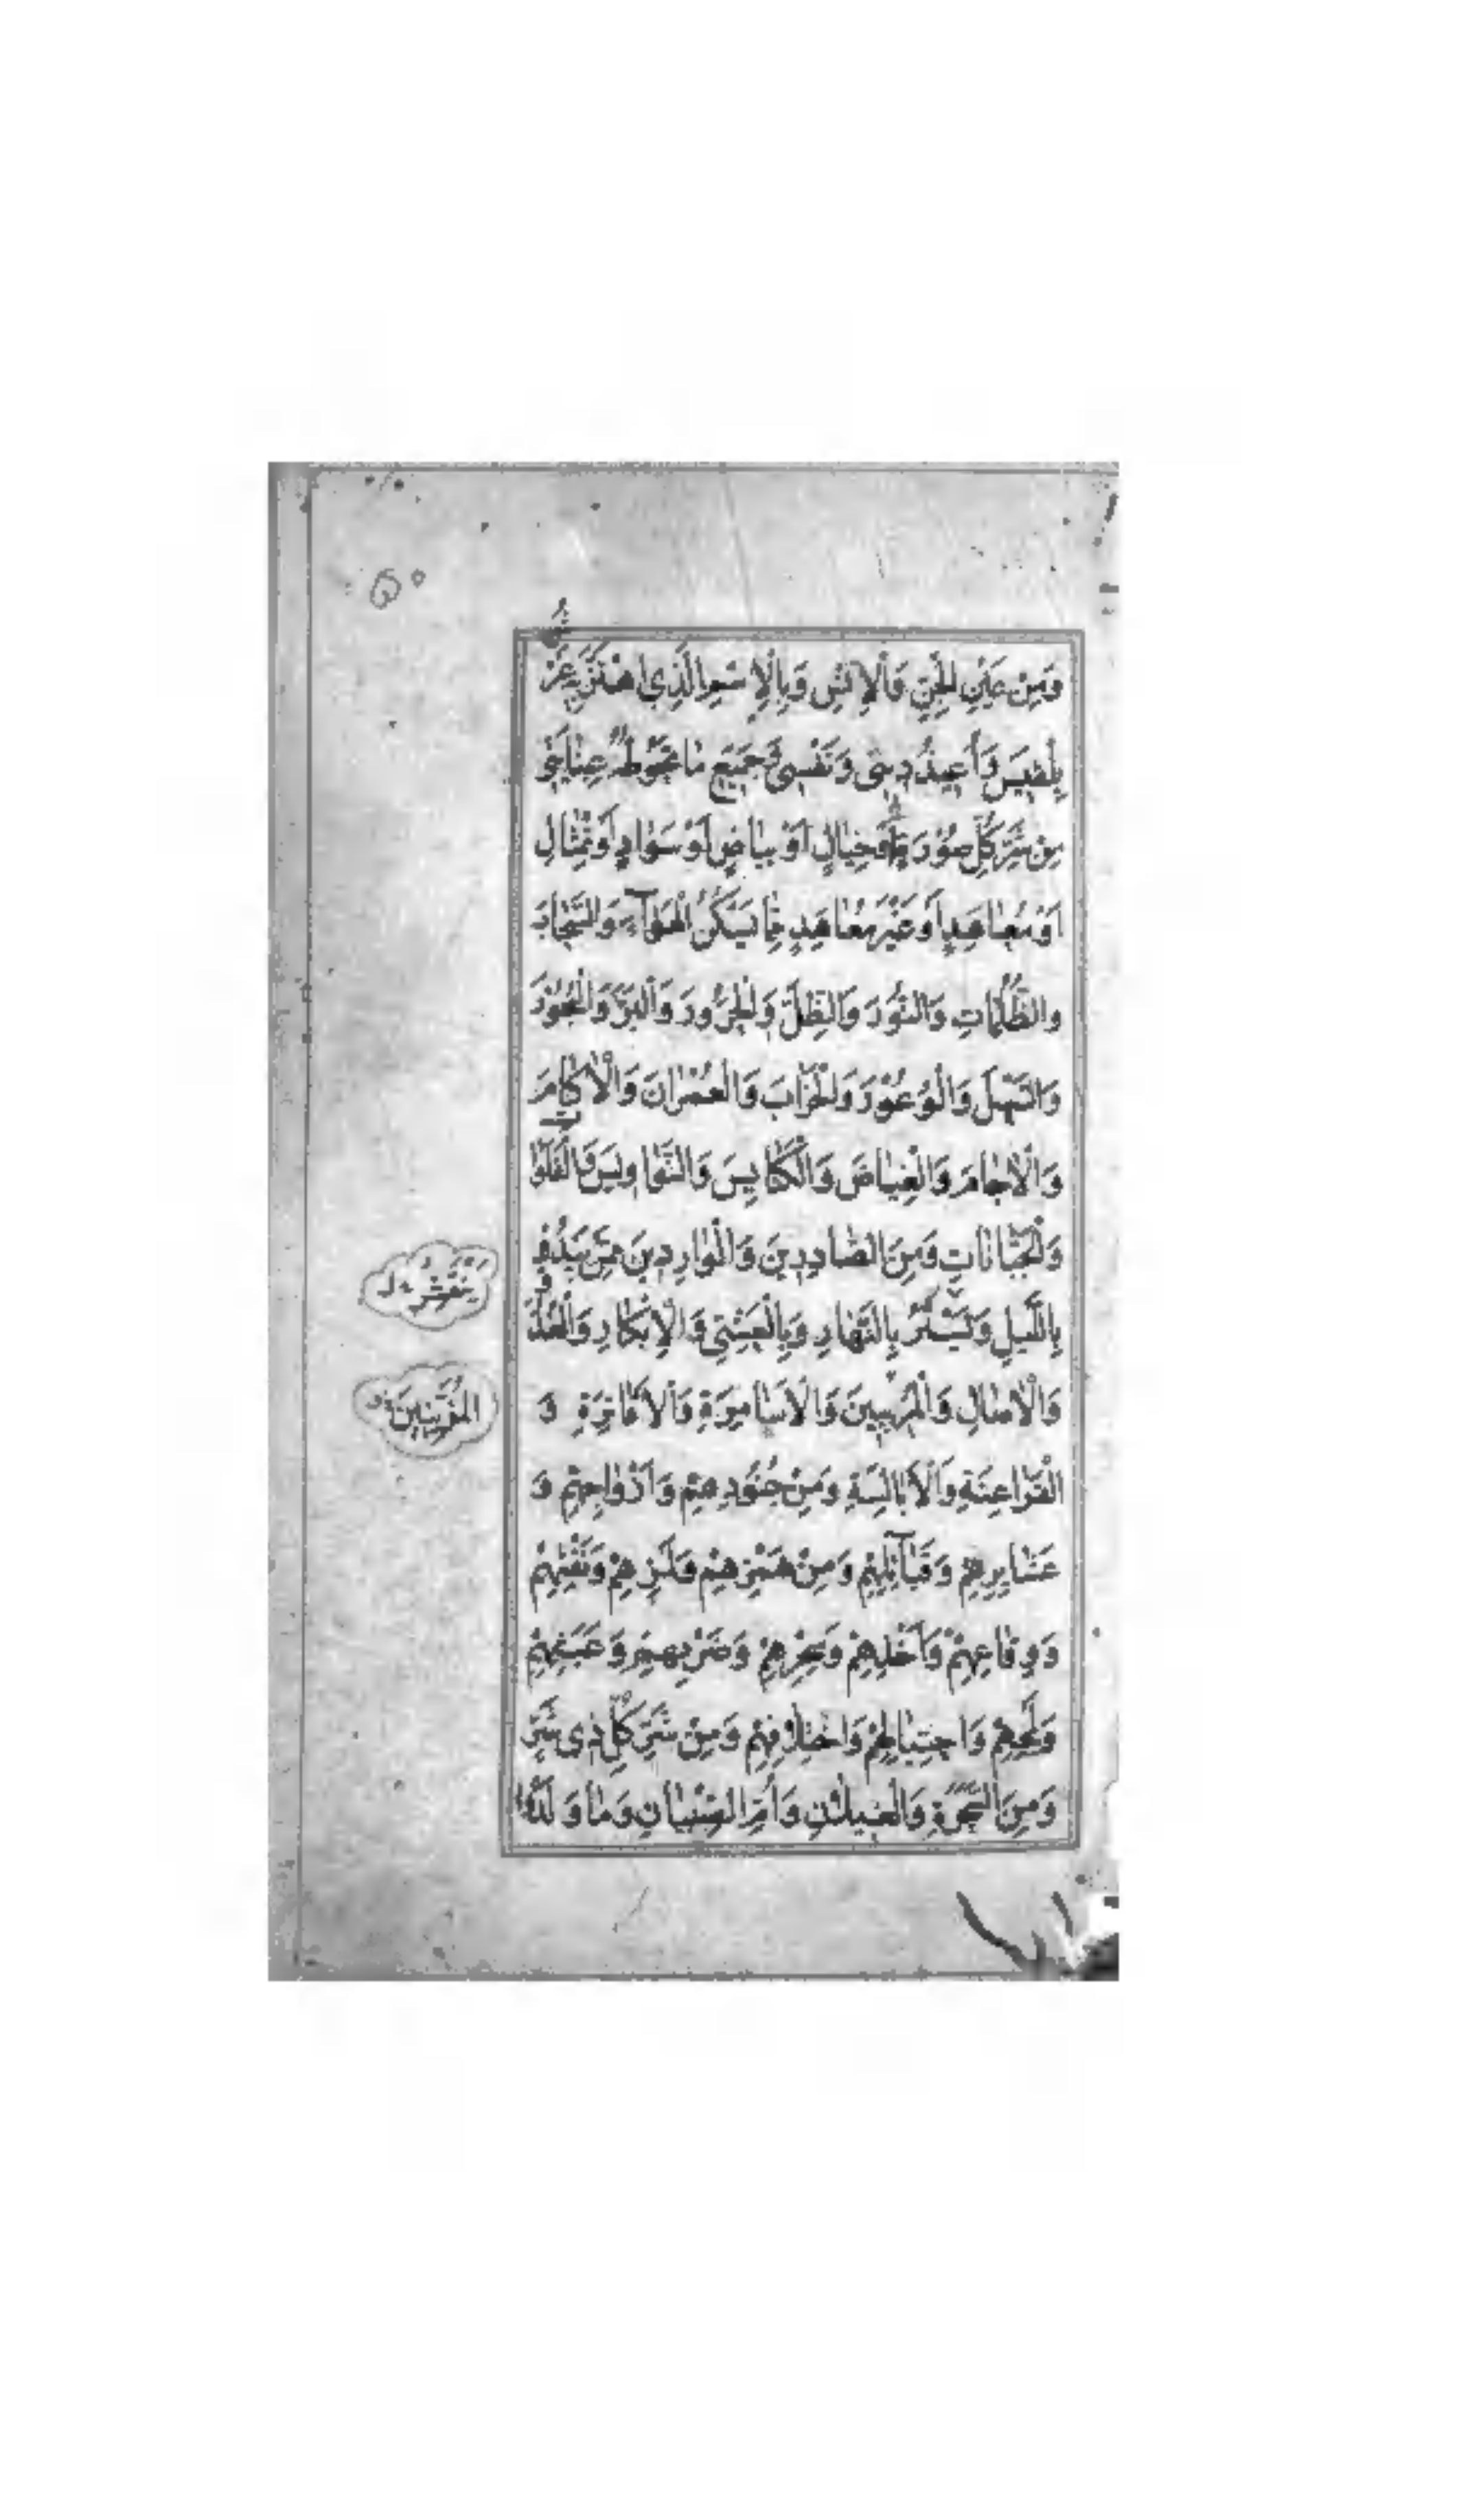 ٥٠
وَمِنْ عَيْنِ الْجِنِّ وَالْاِنْسِ وَبِالْاِسْمِ الَّذِي اهْتَزَّ بِهِ عَرْشُ
بِلْقِيسَ وَاُعِيذُ دِينِي وَنَفْسِي وَجَمِيعَ مَا تَحُوطُهُ عِنَايَتِي
مِنْ شَرِّ كُلِّ صُورَةٍ وَخَيَالٍ اَوْ بَيَاضٍ اَوْ سَوَادٍ اَوْ تِمْثَالٍ
اَوْ مُعَاهِدٍ اَوْ غَيْرِ مُعَاهِدٍ مِمَّا يَسْكُنُ الْهَوَآءَ وَالسَّحَابَ
وَالظُّلُمَاتِ وَالنُّورَ وَالظِّلَّ وَالْحَرُورَ وَالْبَرَّ وَالْبُحُورَ
وَالسَّهْلَ وَالْوُعُورَ وَالْخَرَابَ وَالْعُمْرَانَ وَالْاٰكَامَ
وَالْاٰجَامَ وَالْغِيَاضَ وَالْكَنَايِسَ وَالنَّوَاوِيسَ وَالْفَلَوَاتِ
وَالْجَبَّانَاتِ وَمِنَ الصَّادِرِينَ وَالْوَارِدِينَ مِمَّنْ يَبْدُو
بِاللَّيْلِ وَيَسْتَتِرُ بِالنَّهَارِ وَبِالْعَشِيِّ وَالْاِبْكَارِ وَالْغُدُوِّ
وَالْاٰصَالِ وَالْمُرِيبِينَ وَالْاَسَامِرَةِ وَالْاَفَاتِرَةِ وَ
الْفَرَاعِنَةِ وَالْاَبَالِسَةِ وَمِنْ جُنُودِهِمْ وَاَزْوَاجِهِمْ وَ
عَشَايِرِهِمْ وَقَبَآئِلِهِمْ وَمِنْ هَمْزِهِمْ وَلَمْزِهِمْ وَنَفْثِهِمْ
وَوِقَاعِهِمْ وَاَخْذِهِمْ وَسِحْرِهِمْ وَضَرْبِهِمْ وَعَبَثِهِمْ
وَلَمْحِهِمْ وَاحْتِيَالِهِمْ وَاخْتِلَافِهِمْ وَمِنْ شَرِّ كُلِّ ذِي شَرٍّ
وَمِنَ السَّحَرَةِ وَالْغِيلَانِ وَاُمِّ الصِّبْيَانِ وَمَا وَلَدُوا